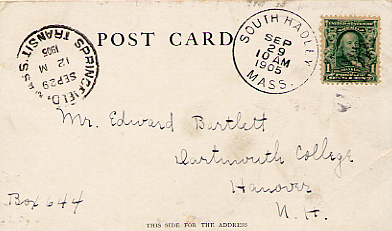 POST CARD
SOUTH HADLEY
SEP
29
10 AM
1905
MASS.
SPRINGFIELD,
TRANSIT.
SEP 29
12 M
1905
Mr. Edward Bartlett
Dartmouth College
Hanover
N. H.
Box 644
THIS SIDE FOR THE ADDRESS